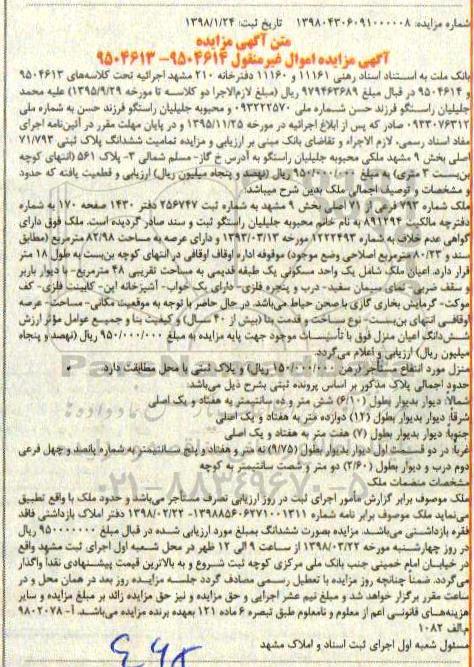 شماره مزایده: ۱۳۹۸۰۴۳۰۶۰۹۱۰۰۰۰۰۸ تاریخ ثبت: ۱۳۹۸/۱/۲۴
متن آگهی مزایده
آگهی مزایده اموال غیرمنقول ۹۵۰۴۶۱۴-۹۵۰۴۶۱۳
بانک ملت به استناد اسناد رهنی ۱۱۱۶۱ و ۱۱۱۶۰ دفترخانه ۲۱۰ مشهد اجرائیه تحت کلاسه‌های ۹۵۰۴۶۱۳
و ۹۵۰۴۶۱۴ در قبال مبلغ ۹۷۹۴۶۳۶۸۹ ریال (مبلغ لازم‌الاجرا دو کلاسه تا مورخه ۱۳۹۵/۹/۲۹) علیه محمد
جلیلیان راستگو فرزند حسن شماره ملی ۰۹۳۲۲۲۵۷۰ و محبوبه جلیلیان راستگو فرزند حسن به شماره ملی
۰۹۳۳۰۷۶۳۱۲ صادر که پس از ابلاغ اجرائیه در مورخه ۱۳۹۵/۱۱/۲۵ و در پایان مهلت مقرر در آئین‌نامه اجرای
مفاد اسناد رسمی، لازم الاجراء و تقاضای بانک مبنی بر ارزیابی و مزایده تمامیت ششدانگ پلاک ثبتی ۷۱/۷۹۳
اصلی بخش ۹ مشهد ملکی محبوبه جلیلیان راستگو به آدرس خ گاز- مسلم شمالی ۳- پلاک ۵۶۱ (انتهای کوچه
بن‌بست ۳ متری) به مبلغ ۹۵۰/۰۰۰/۰۰۰ ریال (نهصد و پنجاه میلیون ریال) ارزیابی و قطعیت یافته که حدود
و مشخصات و توصیف اجمالی ملک بدین شرح میباشد:
ملک شماره ۷۹۳ فرعی از ۷۱ اصلی بخش ۹ مشهد به شماره ثبت ۲۵۶۷۴۷ دفتر ۱۴۳۰ صفحه ۱۷۰ به شماره
دفترچه مالکیت ۸۹۱۲۹۴ به نام خانم محبوبه جلیلیان راستگو ثبت و سند صادر گردیده است. ملک فوق دارای
گواهی عدم خلاف به شماره ۱۲۲۲۴۹۳ مورخه ۱۳۹۳/۰۳/۱۳ و دارای عرصه به مساحت ۸۲/۹۸ مترمربع (مطابق
سند و ۸۰/۲۳ مترمربع اصلاحی وضع موجود) موقوفه اداره اوقاف اوقافی در انتهای کوچه بن‌بست به طول ۱۸ متر
قرار دارد. اعیان ملک شامل یک واحد مسکونی یک طبقه قدیمی به مساحت تقریبی ۴۸ مترمربع- با دیوار باربر
و سقف ضربی- نمای سیمان سفید- درب و پنجره فلزی- دارای یک خواب- آشپزخانه اپن- کابینت فلزی- کف
موکت- گرمایش بخاری گازی با صحن حیاط می‌باشد. در حال حاضر با توجه به موقعیت مکانی- مساحت- عرصه
اوقافی- انتهای بن‌بست- نوع ساخت و قدمت بنا (بیش از ۴۰ سال) و کیفیت بنا و جمیع عوامل مؤثر ارزش
شش‌دانگ اعیان منزل فوق با تأسیسات موجود جهت پایه مزایده به مبلغ ۹۵۰/۰۰۰/۰۰۰ ریال (نهصد و پنجاه
میلیون ریال) ارزیابی و اعلام می‌گردد.
منزل مورد انتفاع مستأجر (رهن ۱۵۰/۰۰۰/۰۰۰ ریال) و پلاک ثبتی با محل مطابقت دارد.
حدود اجمالی پلاک مذکور بر اساس پرونده ثبتی بشرح ذیل می‌باشد:
شمالا: دیوار بدیوار بطول (۶/۱۰) شش متر و ده سانتیمتر به هفتاد و یک اصلی
شرقا: دیوار بدیوار بطول (۱۲) دوازده متر به هفتاد و یک اصلی
جنوبا: دیوار بدیوار بطول (۷) هفت متر به هفتاد و یک اصلی
غربا: در دو قسمت اول دیوار بدیوار بطول (۹/۷۵) نه متر و هفتاد و پنج سانتیمتر به شماره پانصد و چهل فرعی
دوم درب و دیوار بطول (۲/۶۰) دو متر و شصت سانتیمتر به کوچه
مشخصات منضمات ملک
ملک موصوف برابر گزارش مأمور اجرای ثبت در روز ارزیابی تصرف مستأجر می‌باشد و حدود ملک با واقع تطبیق
می‌نماید ملک موصوف برابر نامه شماره ۱۳۹۸۸۵۶۰۶۲۷۱۰۰۱۳۱۱- ۱۳۹۸/۰۲/۲۲ دفتر املاک بازداشتی فاقد
فقره بازداشتی می‌باشد. مزایده بصورت ششدانگ بمبلغ مورد ارزیابی شده در قبال مبلغ ۹۵۰۰۰۰۰۰۰ ریال
در روز چهارشنبه مورخه ۱۳۹۸/۰۳/۲۲ از ساعت ۹ الی ۱۲ ظهر در محل شعبه اول اجرای ثبت مشهد واقع
در خیابان امام خمینی جنب بانک ملی مرکزی کوچه ثبت شروع و به بالاترین قیمت پیشنهادی نقدا واگذار
می‌گردد. ضمناً چنانچه روز مزایده با تعطیل رسمی مصادف گردد جلسه مزایده روز بعد در همان محل و در
ساعت مقرر برگزار خواهد شد و مبلغ نیم عشر اجرایی و حق مزایده و نیز حق مزایده زائد بر مبلغ مزایده و سایر
هزینه‌های قانونی اعم از معلوم و نامعلوم طبق تبصره ۶ ماده ۱۲۱ بعهده برنده مزایده می‌باشد. آ- ۹۸۰۲۰۷۸
م‌الف ۱۰۸۲
مسئول شعبه اول اجرای ثبت اسناد و املاک مشهد
۰۲۱-۸۸۳۴۹۶۷۰-۵